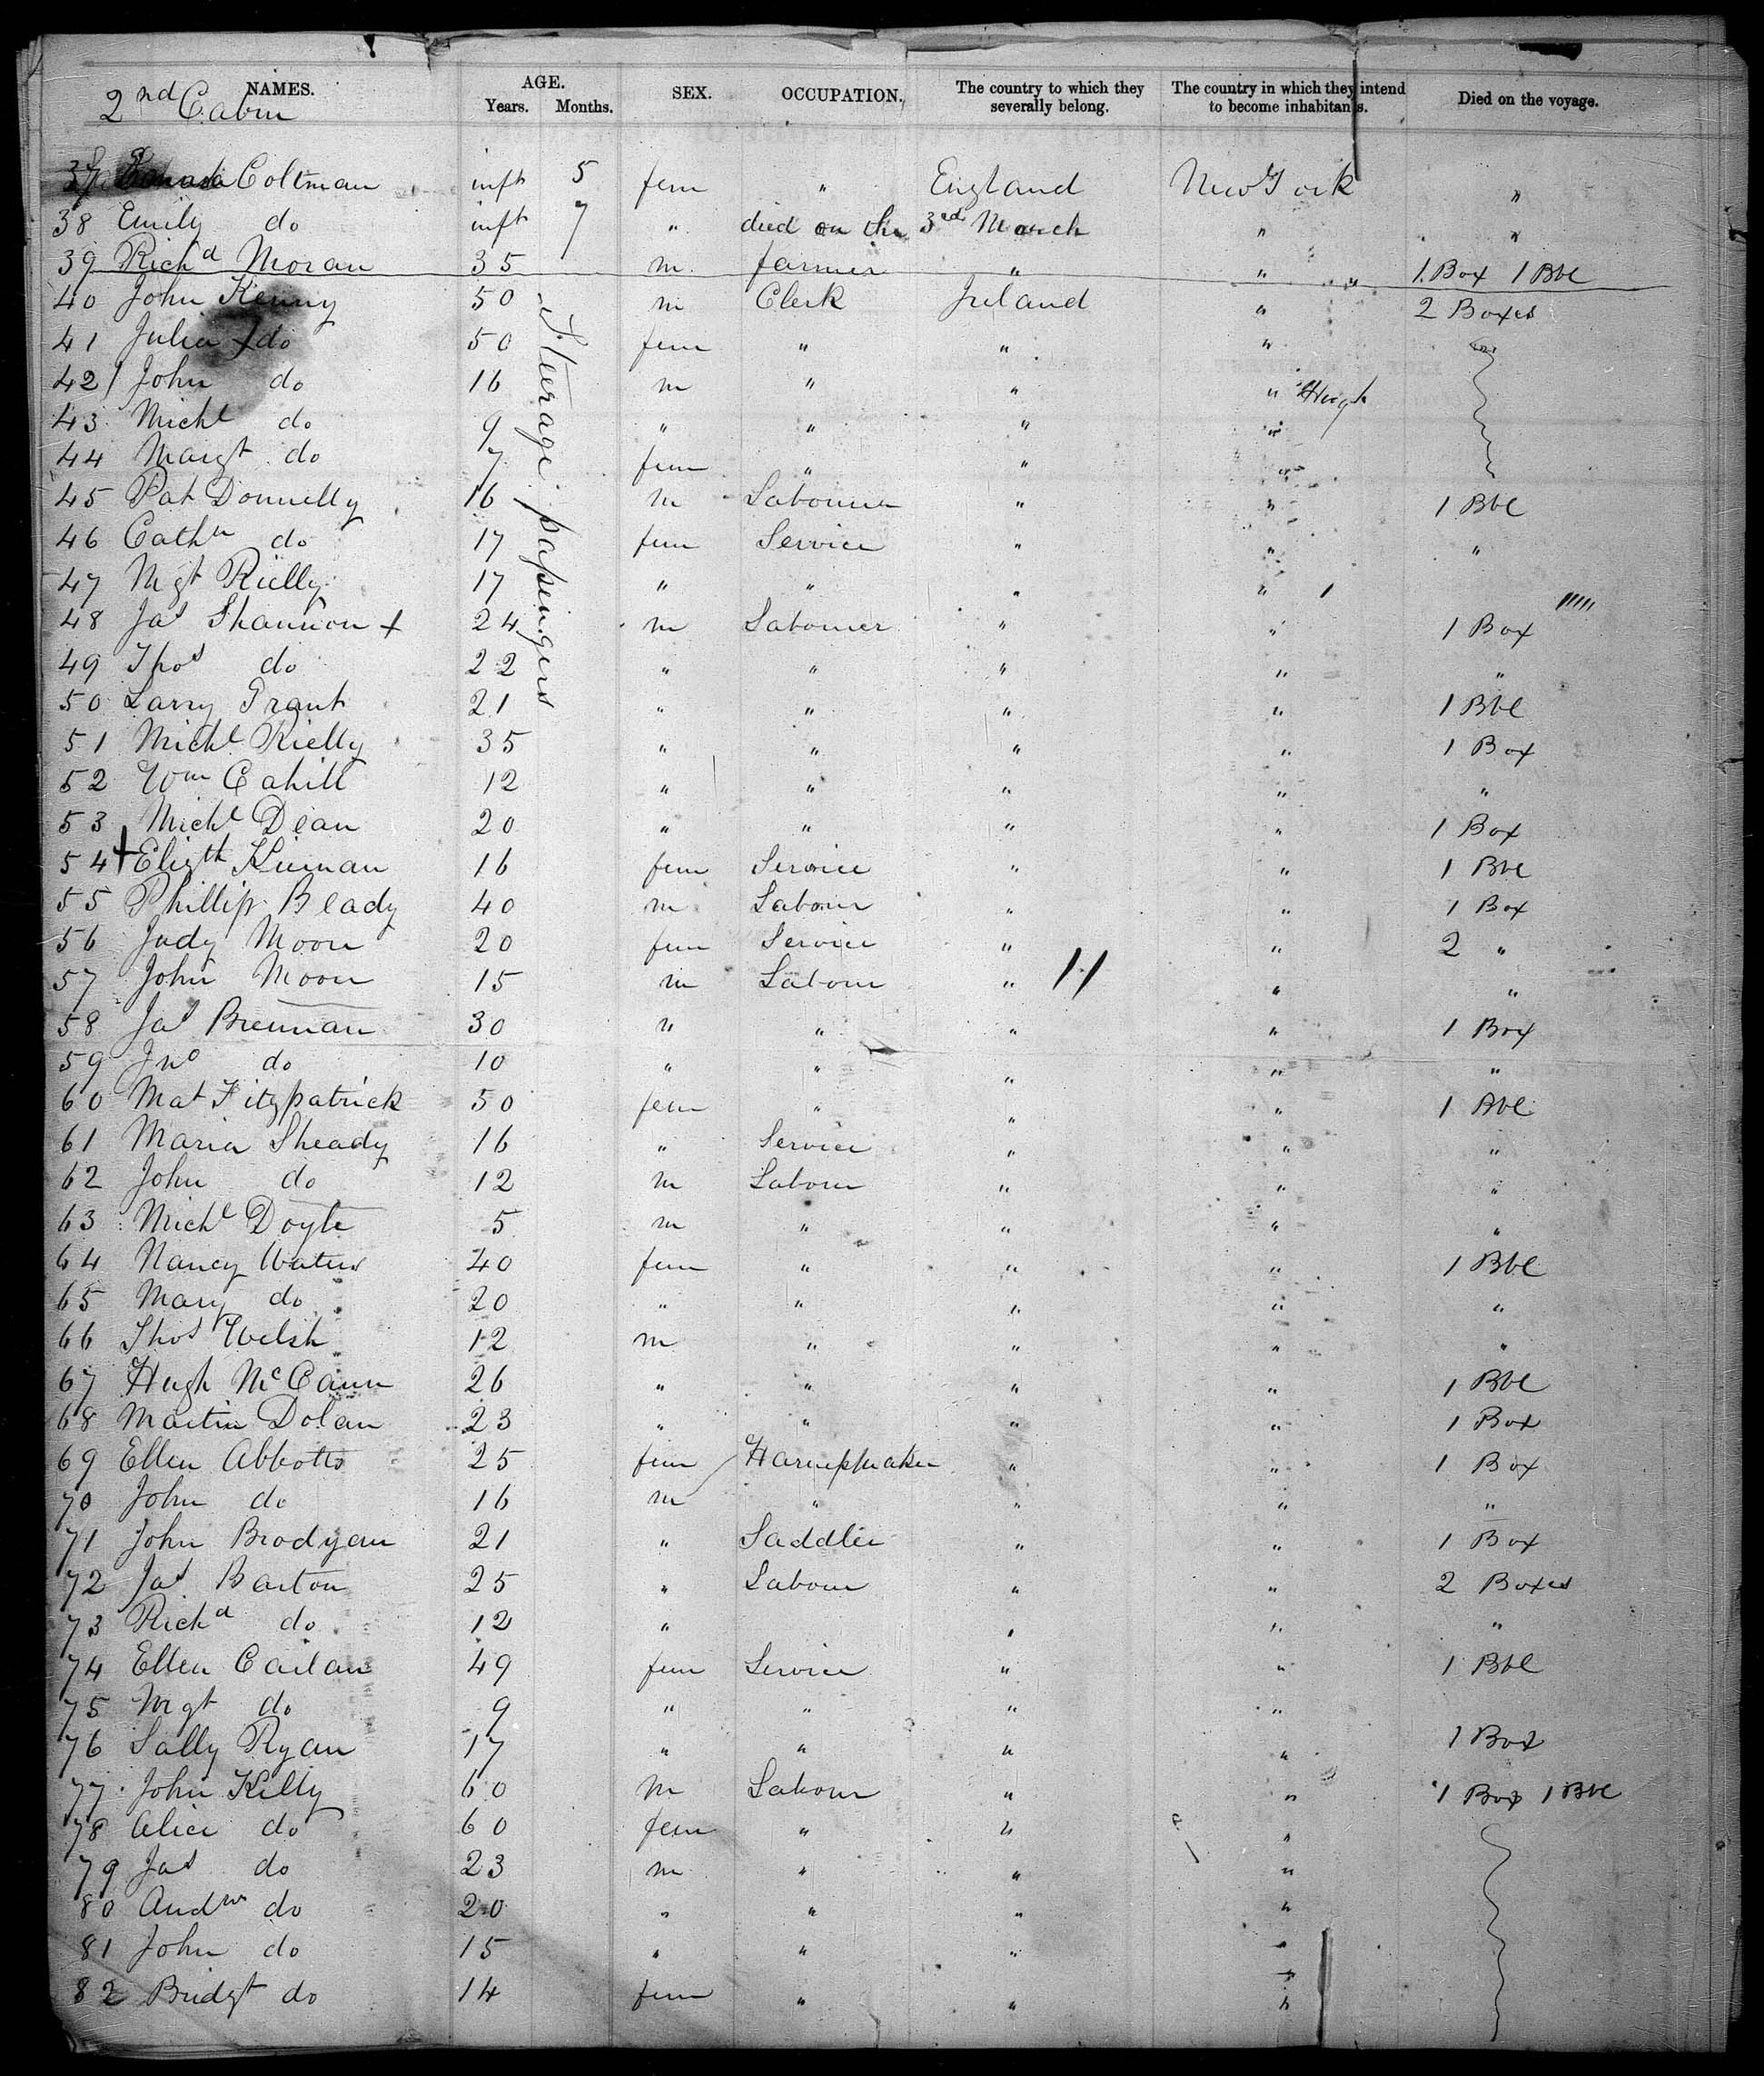 NAMES. AGE. SEX. OCCUPATION. The country to which they severally belong. The country in which they intend to become inhabitants. Died on the voyage.
Years. Months.
2nd Cabin
37 Coltman inft 5 fem " England New York "
38 Emily do inft 7 " died on the 3rd March " "
39 Richd Moran 35 m farmer " " " 1 Box 1 Bbl
40 John Kenny 50 m Clerk Ireland " 2 Boxes
Steerage passengers
41 Julia do 50 fem " " "
42 John do 16 m " " " Hugh
43 Michl do 9 " " " "
44 Margt do 7 fem " " "
45 Pat Donnelly 16 m Labourer " " 1 Bbl
46 Cathn do 17 fem Service " " "
47 Mgt Rielly 17 " " " "
48 Jas Shannon + 24 m Labourer " " 1 Box
49 Thos do 22 " " " " "
50 Larry Grant 21 " " " " 1 Bbl
51 Michl Rielly 35 " " " " 1 Box
52 Wm Cahill 12 " " " " "
53 Michl Dean 20 " " " " 1 Box
54 + Elizth Kiernan 16 fem Service " " 1 Bbl
55 Phillip Beady 40 m Labour " " 1 Box
56 Judy Moon 20 fem Service " " 2 "
57 John Moon 15 m Labour " 11 " "
58 Jas Brennan 30 " " " " 1 Box
59 Jno do 10 " " " " "
60 Mat Fitzpatrick 50 fem " " " 1 Bbl
61 Maria Sheady 16 " Service " " "
62 John do 12 m Labour " " "
63 Michl Doyle 5 m " " " "
64 Nancy Waters 40 fem " " " 1 Bbl
65 Mary do 20 " " " " "
66 Thos Welsh 12 m " " " "
67 Hugh McCann 26 " " " " 1 Bbl
68 Martin Dolan 23 " " " " 1 Box
69 Ellen Abbotts 25 fem Harnessmaker " " 1 Box
70 John do 16 m " " " "
71 John Brodyan 21 " Saddler " " 1 Box
72 Jas Barton 25 " Labour " " 2 Boxes
73 Richd do 12 " " " "
74 Ellen Carlan 49 fem Service " " 1 Bbl
75 Mgt do 9 " " " "
76 Sally Ryan 17 " " " " 1 Box
77 John Kelly 60 m Labour " " 1 Box 1 Bbl
78 Alice do 60 fem " " "
79 Jas do 23 m " " "
80 Andw do 20 " " " "
81 John do 15 " " " "
82 Bridgt do 14 fem " " "